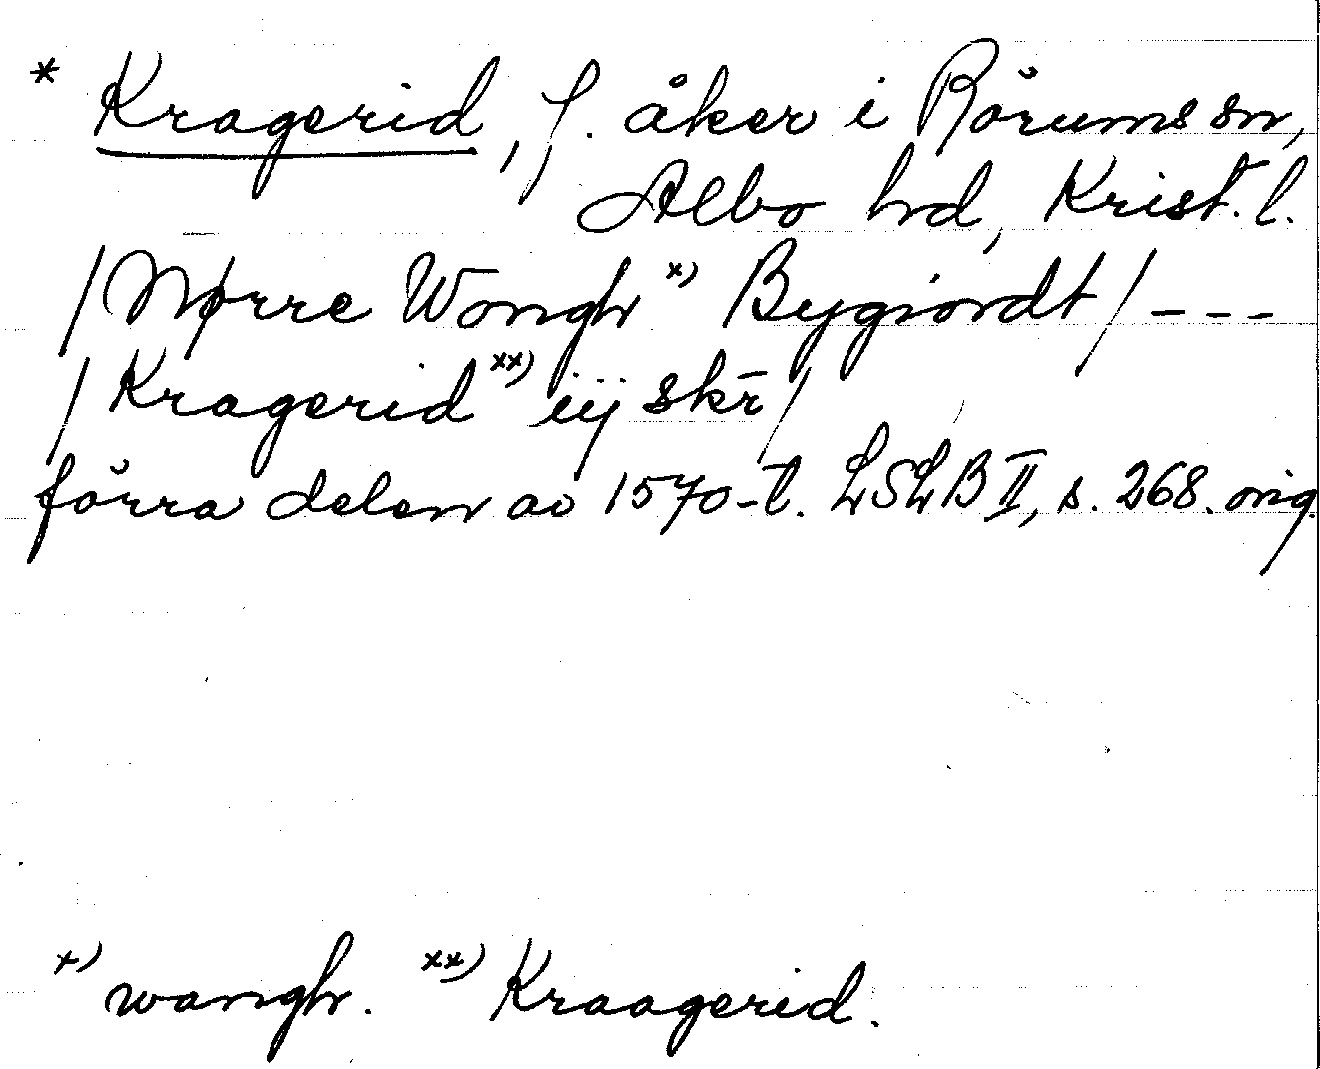 * Kragerid, f. åker i Rörums sn,
Albo hd, Krist. l.
/Nørre Wongh x) Bygiordt/ ---
/Kragerid xx) iij skr̄/
förra delen av 1570-t. LSLB II, s. 268. orig.
x) wangh. xx) Kraagerid.